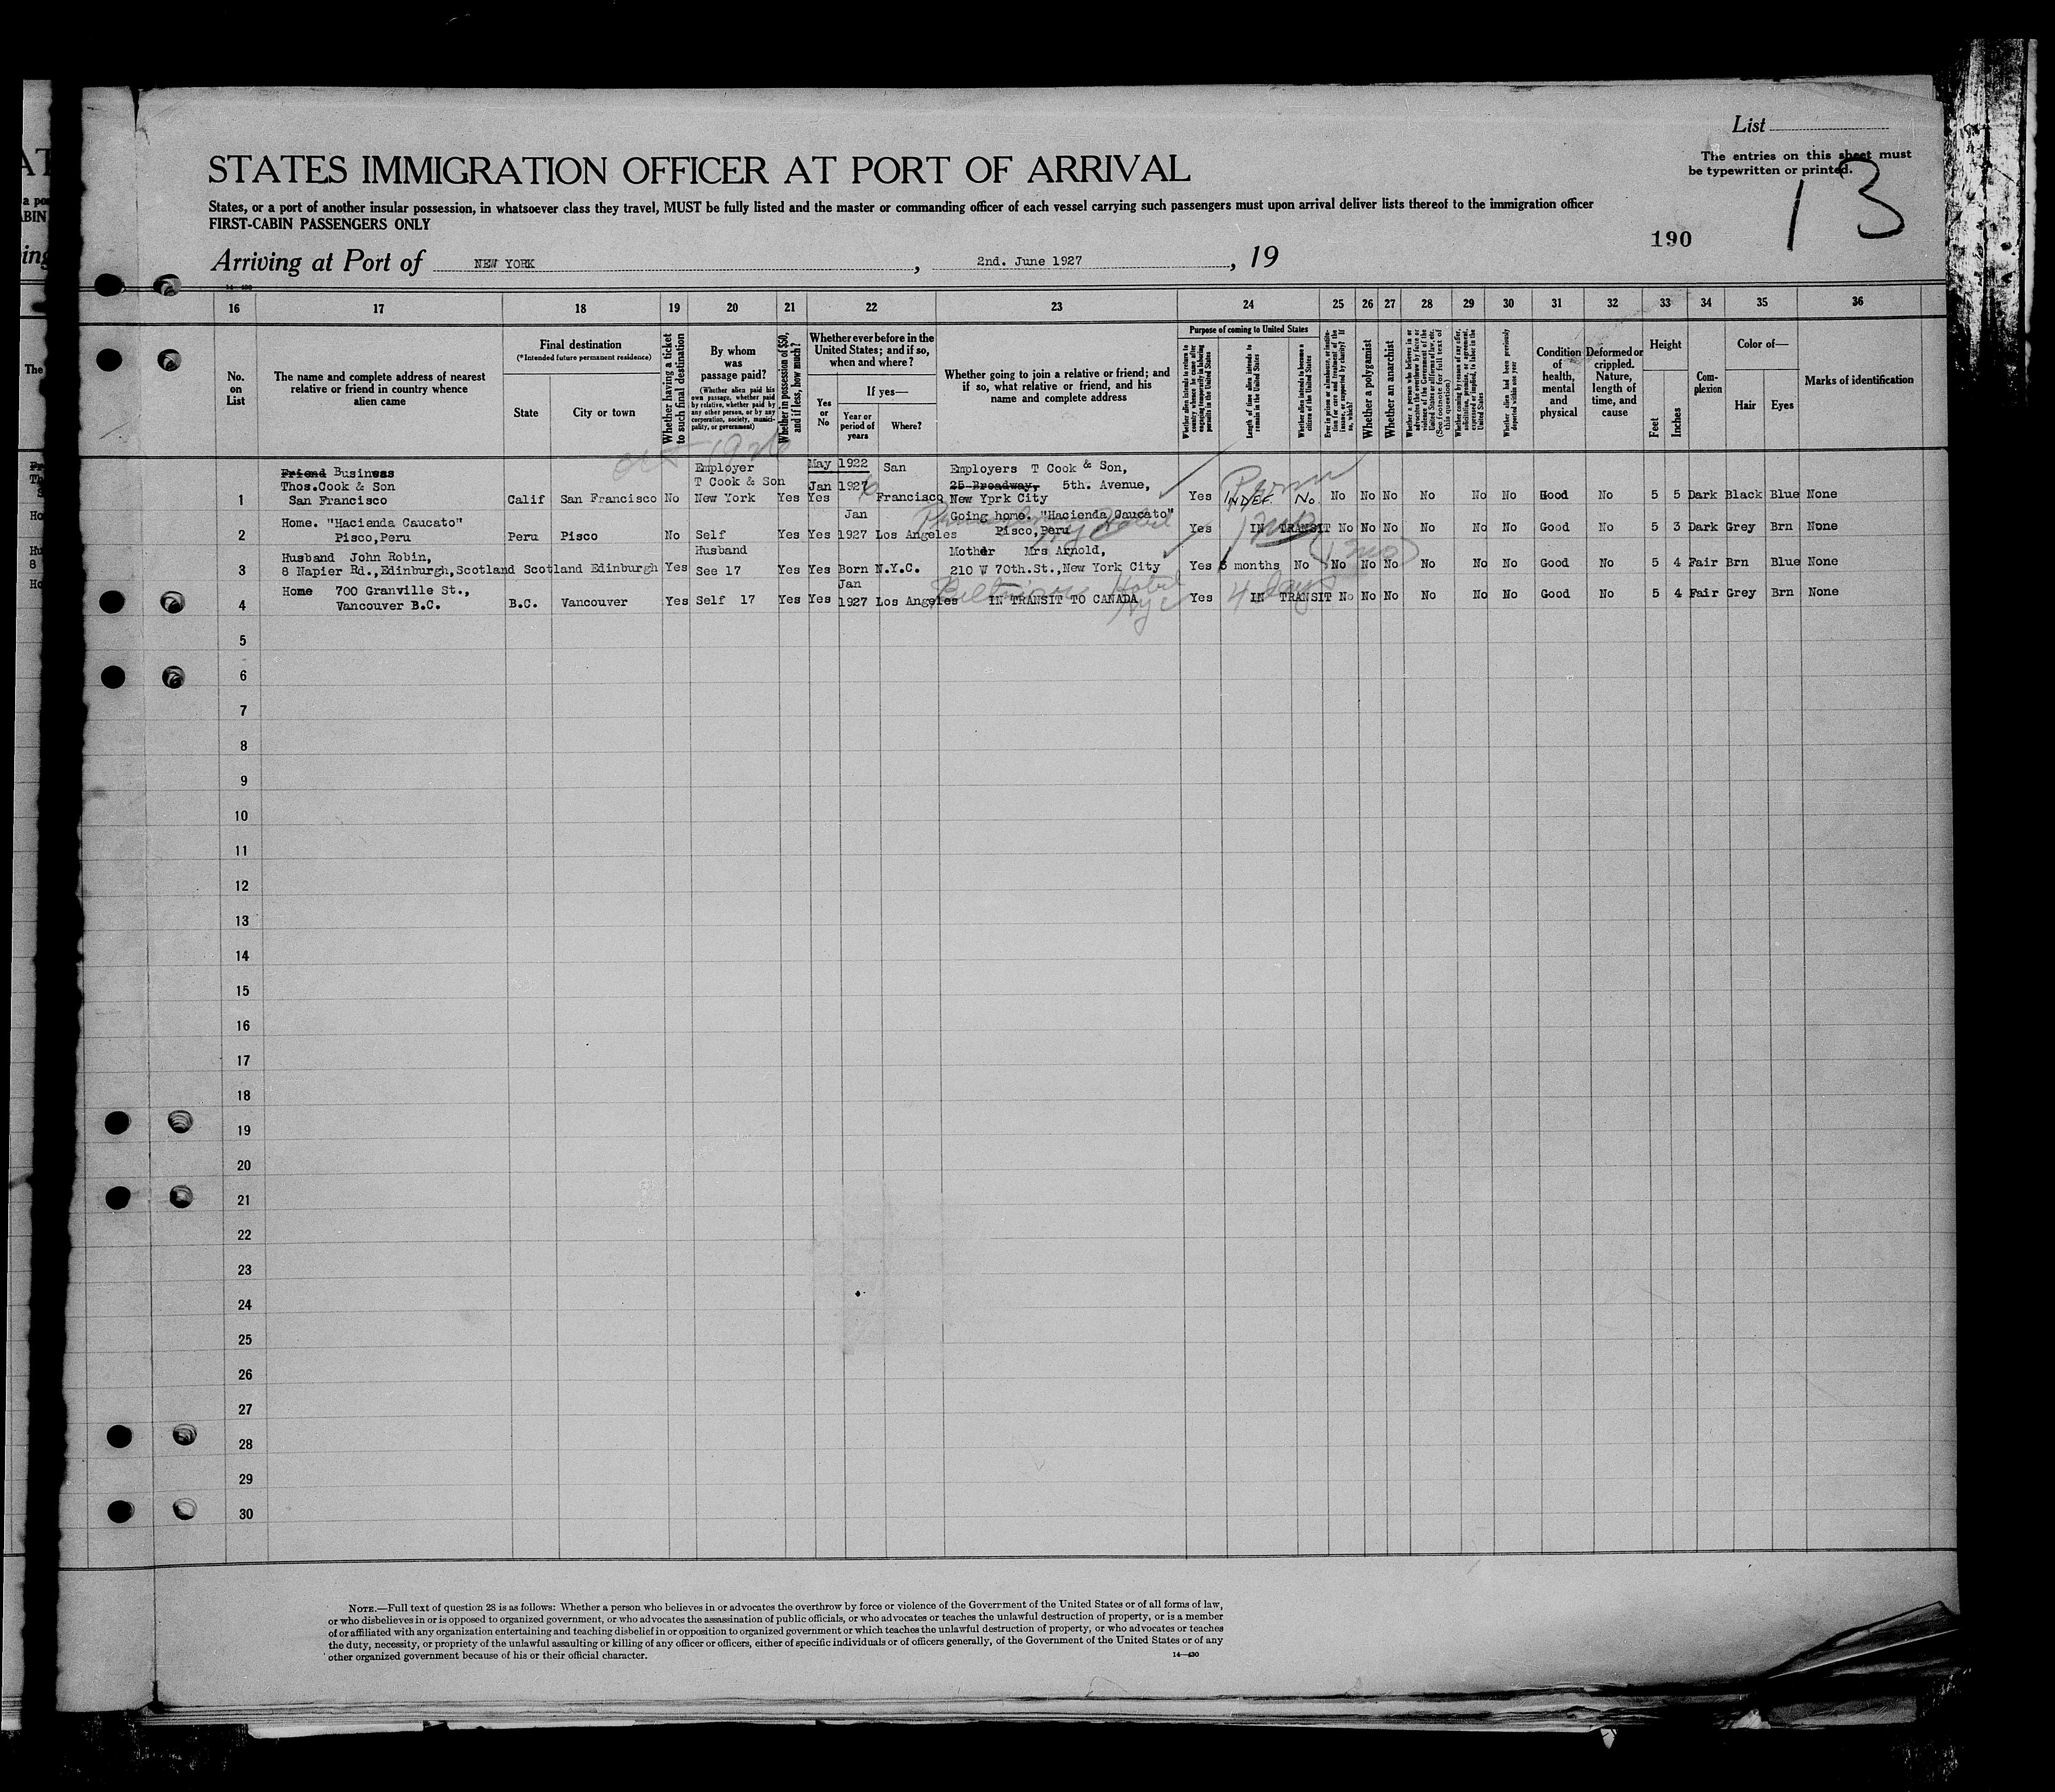 List
The entries on this sheet must
be typewritten or printed.
13
STATES IMMIGRATION OFFICER AT PORT OF ARRIVAL
States, or a port of another insular possession, in whatsoever class they travel, MUST be fully listed and the master or commanding officer of each vessel carrying such passengers must upon arrival deliver lists thereof to the immigration officer
FIRST-CABIN PASSENGERS ONLY
190
Arriving at Port of NEW YORK, 2nd. June 1927, 19
16 17 18 19 20 21 22 23 24 25 26 27 28 29 30 31 32 33 34 35 36
No.
on
List
The name and complete address of nearest
relative or friend in country whence
alien came
Final destination
(*Intended future permanent residence)
State
City or town
Whether having a ticket
to such final destination
By whom
was
passage paid?
(Whether alien paid his
own passage, whether paid
by relative, whether paid by
any other person, or by any
corporation, society, munici-
pality, or government)
Whether in possession of $50,
and if less, how much?
Whether ever before in the
United States; and if so,
when and where?
Yes
or
No
If yes—
Year or
period of
years
Where?
Whether going to join a relative or friend; and
if so, what relative or friend, and his
name and complete address
Purpose of coming to United States
Whether alien intends to return to
country whence he came after
engaging temporarily in laboring
pursuits in the United States
Length of time alien intends to
remain in the United States
Whether alien intends to become a
citizen of the United States
Whether a polygamist
Whether an anarchist
Whether alien had been previously
deported within one year
Condition
of
health,
mental
and
physical
Deformed or
crippled.
Nature,
length of
time, and
cause
Height
Feet
Inches
Com-
plexion
Color of—
Hair
Eyes
Marks of identification
Oct 1926
Friend Business Employer May 1922 San Employers T Cook & Son,
Thos.Cook & Son T Cook & Son Jan 1927 25 Broadway, 5th. Avenue,
1 San Francisco Calif San Francisco No New York Yes Yes Francisco New Yprk City Yes INDEF. No No No No No No No Good No 5 5 Dark Black Blue None
Perm
Home. "Hacienda Caucato" Jan Going home. "Hacienda Caucato"
2 Pisco,Peru Peru Pisco No Self Yes Yes 1927 Los Angeles Pisco,Peru Yes IN TRANSIT No No No No No No Good No 5 3 Dark Grey Brn None
Pennsylvania Hotel
NYC
Husband John Robin, Husband Mother Mrs Arnold,
3 8 Napier Rd.,Edinburgh,Scotland Scotland Edinburgh Yes See 17 Yes Yes Born N.Y.C. 210 W 70th.St.,New York City Yes 6 months No No No No No No No Good No 5 4 Fair Brn Blue None
Home 700 Granville St., Jan
4 Vancouver B.C. B.C. Vancouver Yes Self 17 Yes Yes 1927 Los Angeles IN TRANSIT TO CANADA Yes IN TRANSIT No No No No No No Good No 5 4 Fair Grey Brn None
Biltmore Hotel
NYC
4 days
5
6
7
8
9
10
11
12
13
14
15
16
17
18
19
20
21
22
23
24
25
26
27
28
29
30
NOTE.—Full text of question 28 is as follows: Whether a person who believes in or advocates the overthrow by force or violence of the Government of the United States or of all forms of law,
or who disbelieves in or is opposed to organized government, or who advocates the assassination of public officials, or who advocates or teaches the unlawful destruction of property, or is a member
of or affiliated with any organization entertaining and teaching disbelief in or opposition to organized government or which teaches the unlawful destruction of property, or who advocates or teaches
the duty, necessity, or propriety of the unlawful assaulting or killing of any officer or officers, either of specific individuals or of officers generally, of the Government of the United States or of any
other organized government because of his or their official character.
14—430